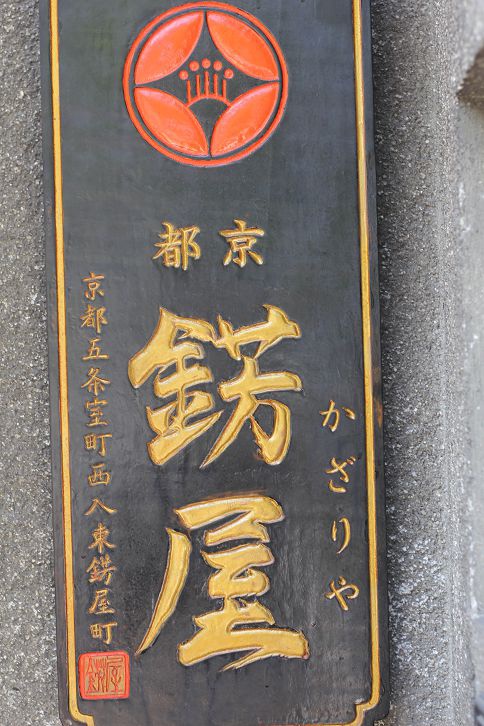 京都
かざりや
錺屋
京都五条室町西入東錺屋町
錺屋